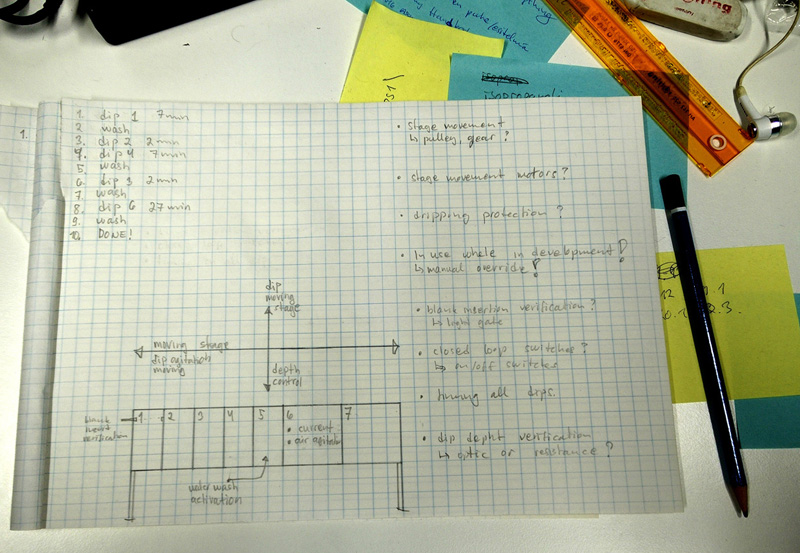 1.
1. dip 1 7min
2 wash
3. dip 2 2min
4. dip 4 7min
5. wash
6. dip 3 2min
7. wash
8. dip 6 27min
9. wash
10. DONE!
• stage movement
↳ pulley, gear?
• stage movement motors?
• dripping protection?
• In use while in development!
↳ manual override!
• blank insertion verification?
↳ light gate
• closed loop switches?
↳ on/off switches
• timing all dips.
• dip depht verification
↳ optic or resistance?
dip
moving
stage
moving stage
dip agitation
moving
depth
control
blank
insert
verification
1 2 3 4 5 6 7
• current
• air agitation
water wash
activation